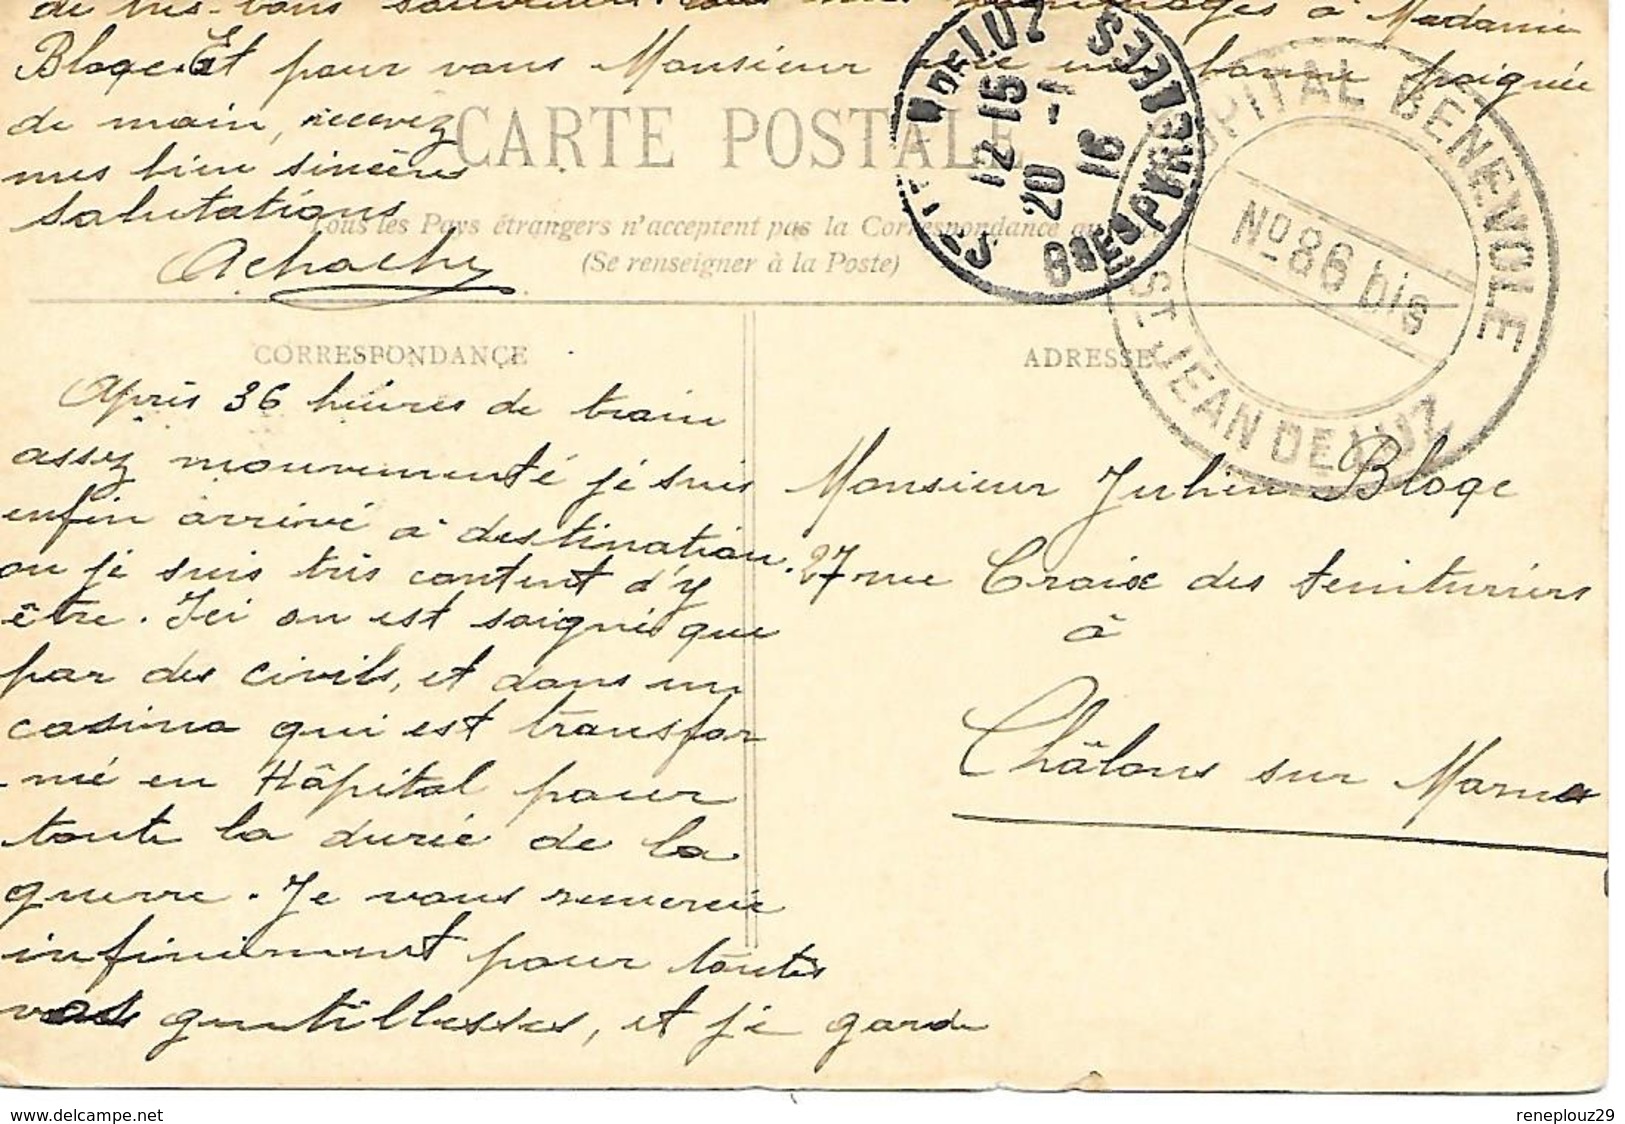 de très bons souvenirs. mes hommages à Madame
Bloqe. Et pour vous Monsieur une bonne poignée
de main, recevez
mes bien sincères
salutations
Achachy
CARTE POSTALE
Tous les Pays étrangers n'acceptent pas la Correspondance au
(Se renseigner à la Poste)
DE LUZ
12-15
20 -1
16
BSES PYRENEES
HOPITAL BENEVOLE
No 86 bis
ST JEAN DE LUZ
CORRESPONDANCE
Après 36 heures de train
assez mouvementé je suis
enfin arrivé à destination
ou je suis très content d'y
être. Ici on est soigné que
par des civils, et dans un
casino qui est transfor
-mé en Hôpital pour
toute la durée de la
guerre. Je vous remercie
infiniment pour toutes
vos gentillesses, et je garde
ADRESSE
Monsieur Julien Bloqe
27 rue Croix des teinturiers
à
Châlons sur Marne
www.delcampe.net
reneplouz29